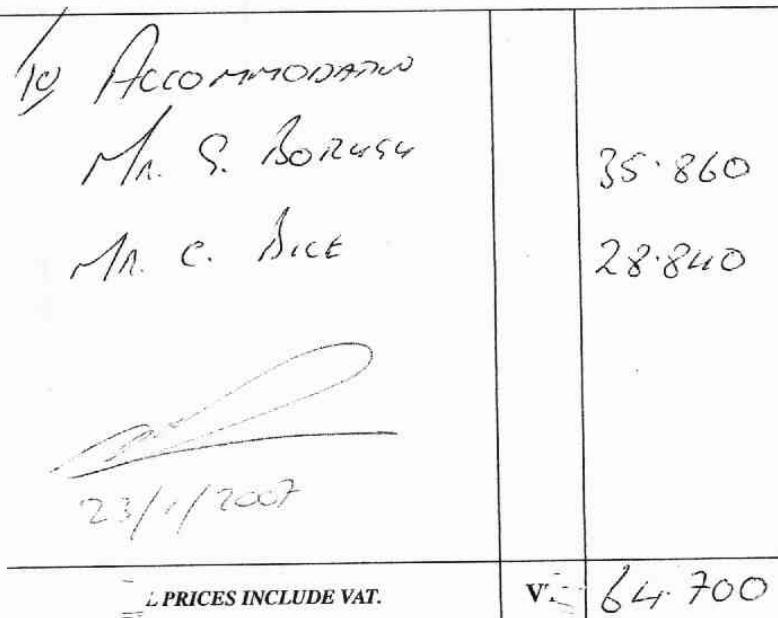 To Accommodation
Mr. S. 35.860
Mr. C. 28.840
23/1/2007
PRICES INCLUDE VAT. 64.700